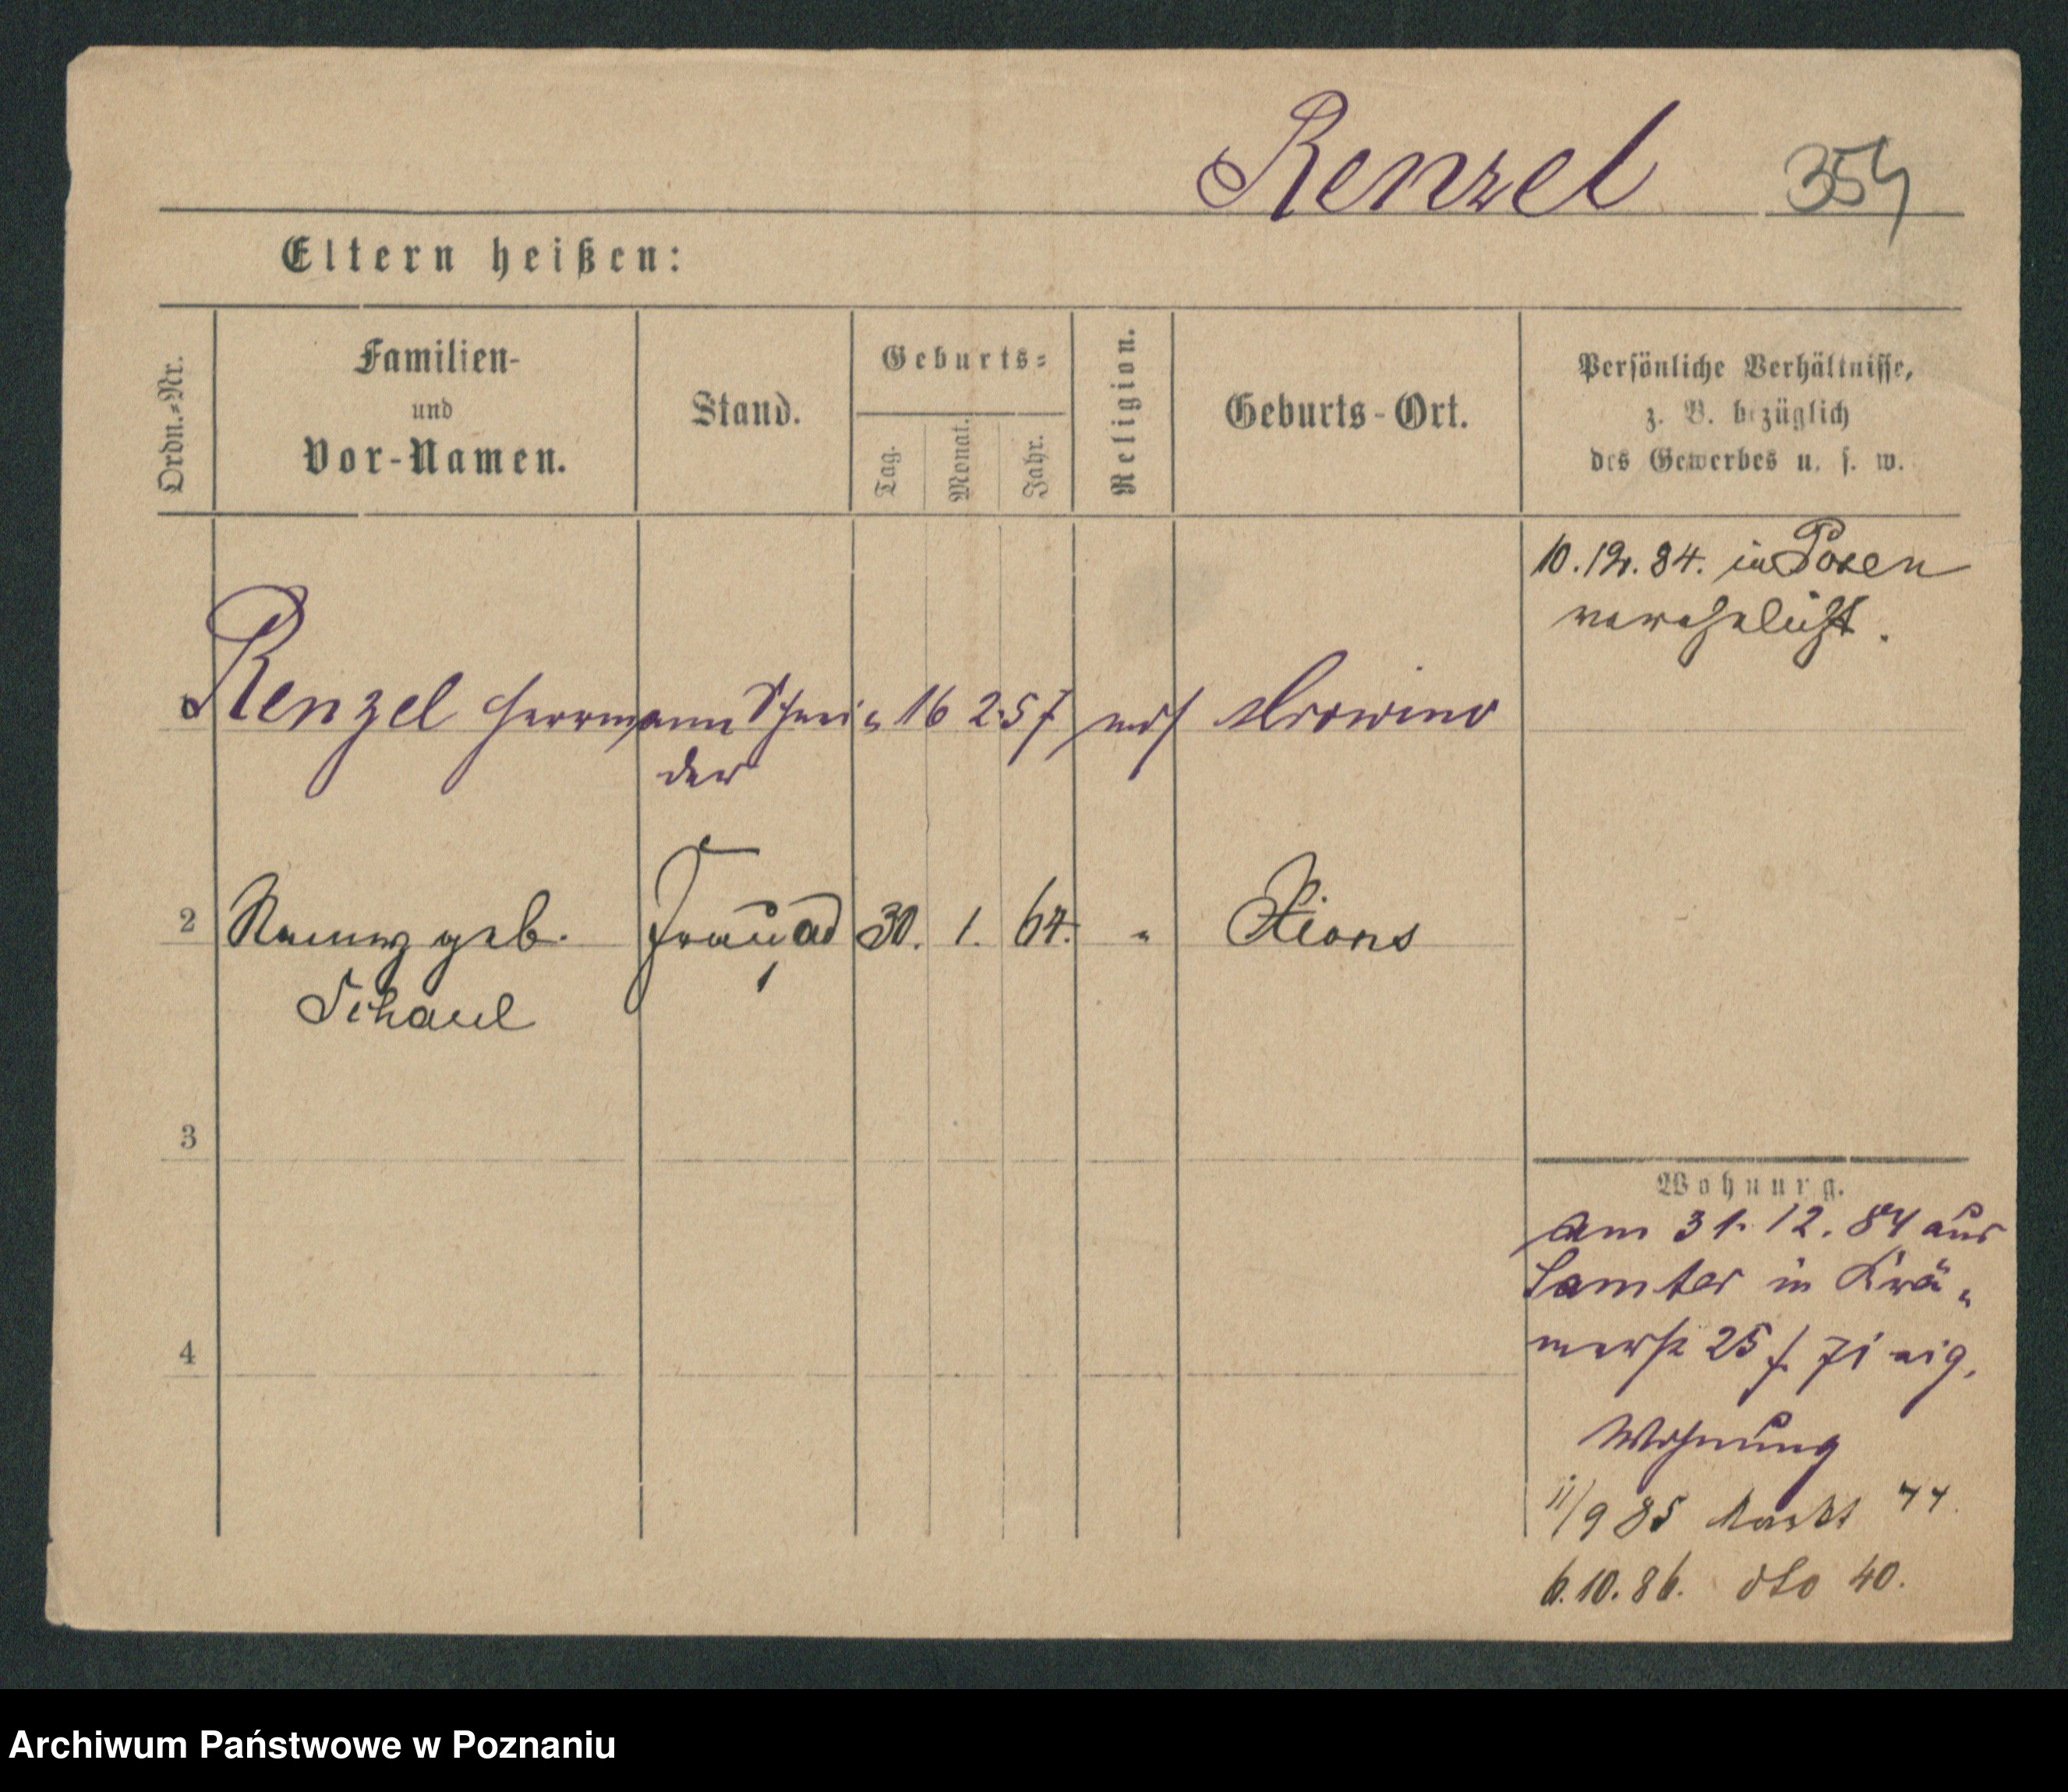 Renzel 354
Eltern heißen:
Ordn.-Nr.
Familien-
und
Vor-Namen.
Stand.
Geburts-
Tag.
Monat.
Jahr.
Religion.
Geburts-Ort.
Persönliche Verhältnisse,
z. B. bezüglich
des Gewerbes u. s. w.
10. 12. 84. in Posen
verehelicht.
Renzel Herrmann Schnei- 16 2 57 mos Mrowino
der
2 geb. Frau ad 30. 1. 64. " Xions
Schaul
3
Wohnung.
Am 31. 12. 84 aus
Samter in Krä-
merstr 25 f. Zi eig.
4
Wohnung
11/9 85 Markt 44.
6. 10. 86. dto 40.
Archiwum Państwowe w Poznaniu